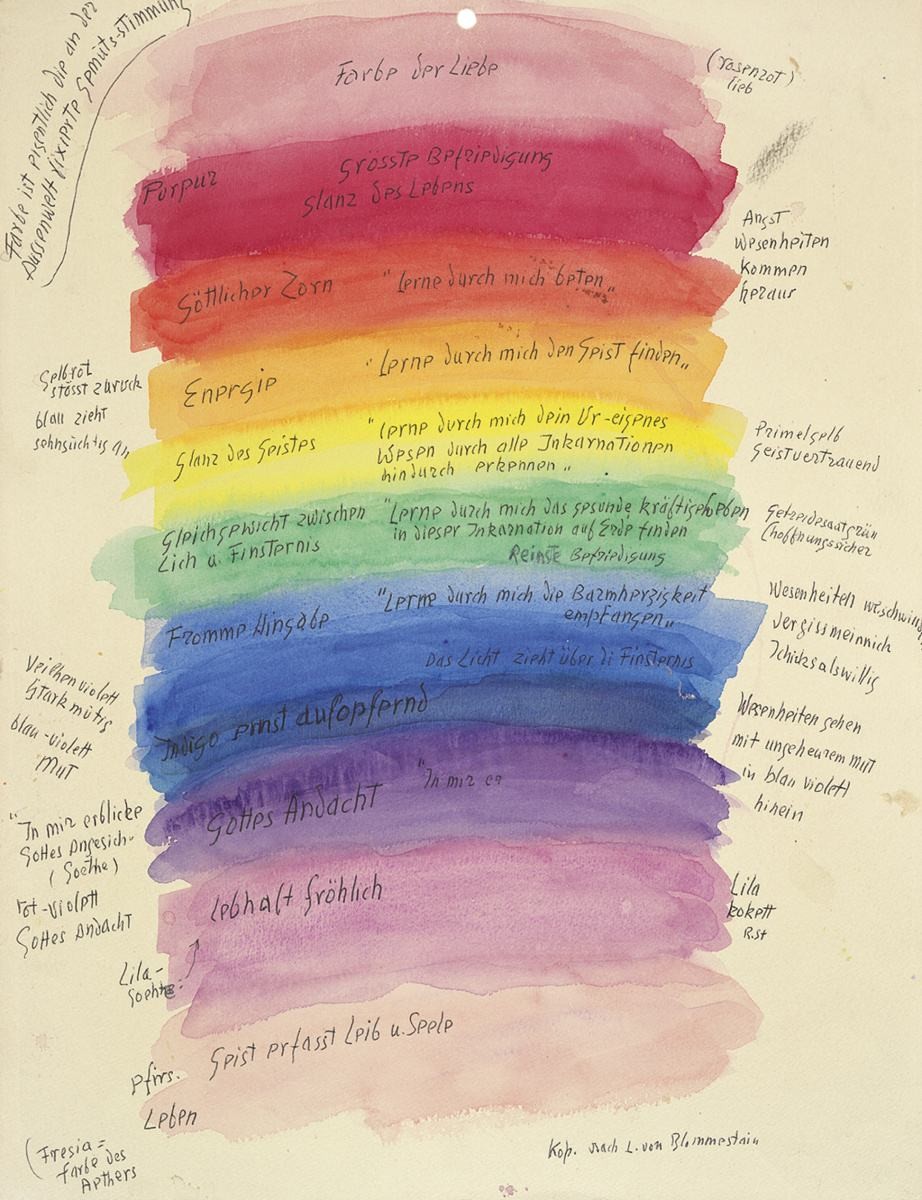 Farbe ist eigentlich die an der
Aussenwelt fixierte Gemüts-stimmung
Farbe der Liebe
(rosenrot)
lieb
Purpur
Grösste Befriedigung
Glanz des Lebens
Angst
Wesenheiten
kommen
heraus
Göttlicher Zorn
"Lerne durch mich beten„
Gelbrot
stösst zurück
blau zieht
sehnsüchtig an
Energie
"Lerne durch mich den Geist finden„
Glanz des Geistes
"Lerne durch mich dein Ur-eigenes
Wesen durch alle Inkarnationen
hindurch erkennen„
Primelgelb
Geistvertrauend
Gleichgewicht zwischen
Lich u. Finsternis
"Lerne durch mich das gesunde kräftige Leben
in dieser Inkarnation auf Erde finden
Reinste Befriedigung
Getreidesaatgrün
(hoffnungssicher
Fromme Hingabe
"Lerne durch mich die Barmherzigkeit
empfangen„
Das Licht zieht über di Finsternis
Wesenheiten
vergissmeinnich
Schiksalswillig
Veilhenviolett
Starkmütig
blau-violett
Mut
Indigo ernst aufopfernd
Wesenheiten gehen
mit ungeheurem mut
in blau violett
hinein
Gottes Andacht
"In mir er
"In mir erblicke
Gottes Angesich-
(Goethe)
rot-violett
Gottes Andacht
Lebhaft fröhlich
Lila
kokett
R.St
Lila-
Goethe:
Geist erfasst Leib u. Seele
Pfirs.
Leben
(Fresia=
farbe des
Äpthers
Kop. nach L. von Blommestein